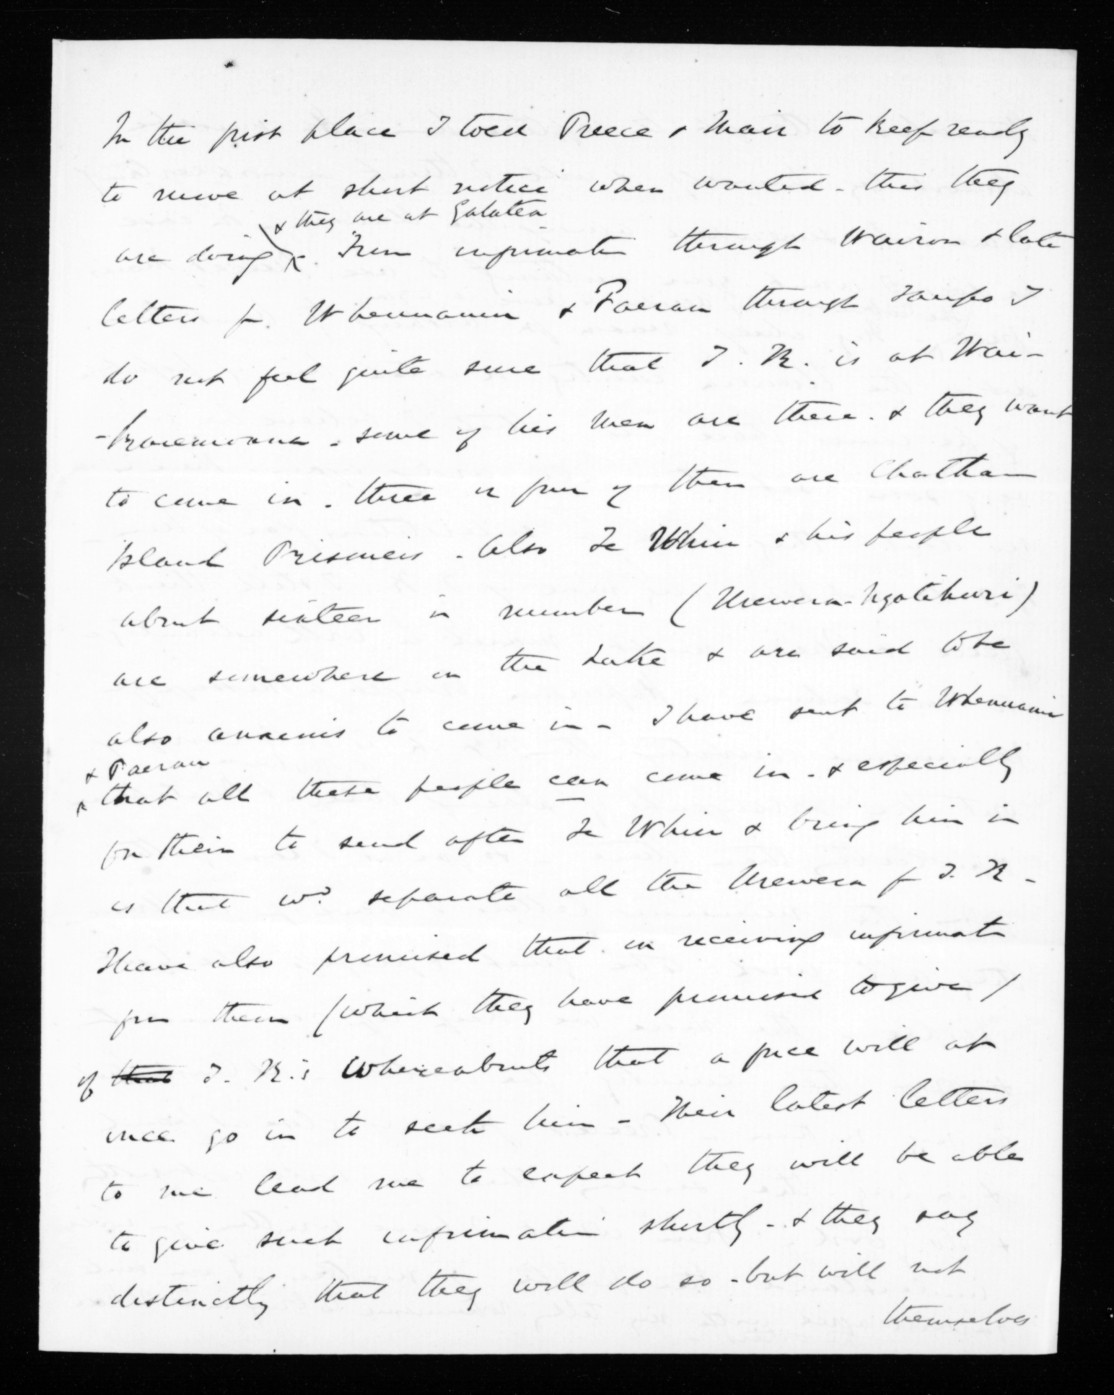 In the first place I told Preece & Mair to keep ready
to move at short notice when wanted - this they
& they are at Galatea
are doing. From informatn through Wairoa & late
letters fr. Whenuanui & Paerau through Taupo I
do not feel quite sure that T. K. is at Wai-
-karemoana - some of his men are there. & they want
to come in. three or four of them are Chatham
Island Prisoners - Also Te Whiu & his people
about sixteen in number (Urewera-Ngatihuri)
are somewhere on the Lake & are said to be
also anxious to come in - I have sent to Whenuanui
& Paerau
that all these people can come in - & especially
for them to send after Te Whiu & bring him in
as that wd. separate all the Urewera fr T. K -
I have also promised that on receiving informatn
from them (which they have promised to give)
of that T. K.'s whereabouts that a force will at
once go in to seek him - Their latest letters
to me lead me to expect they will be able
to give such information shortly - & they say
distinctly that they will do so - but will not
themselves